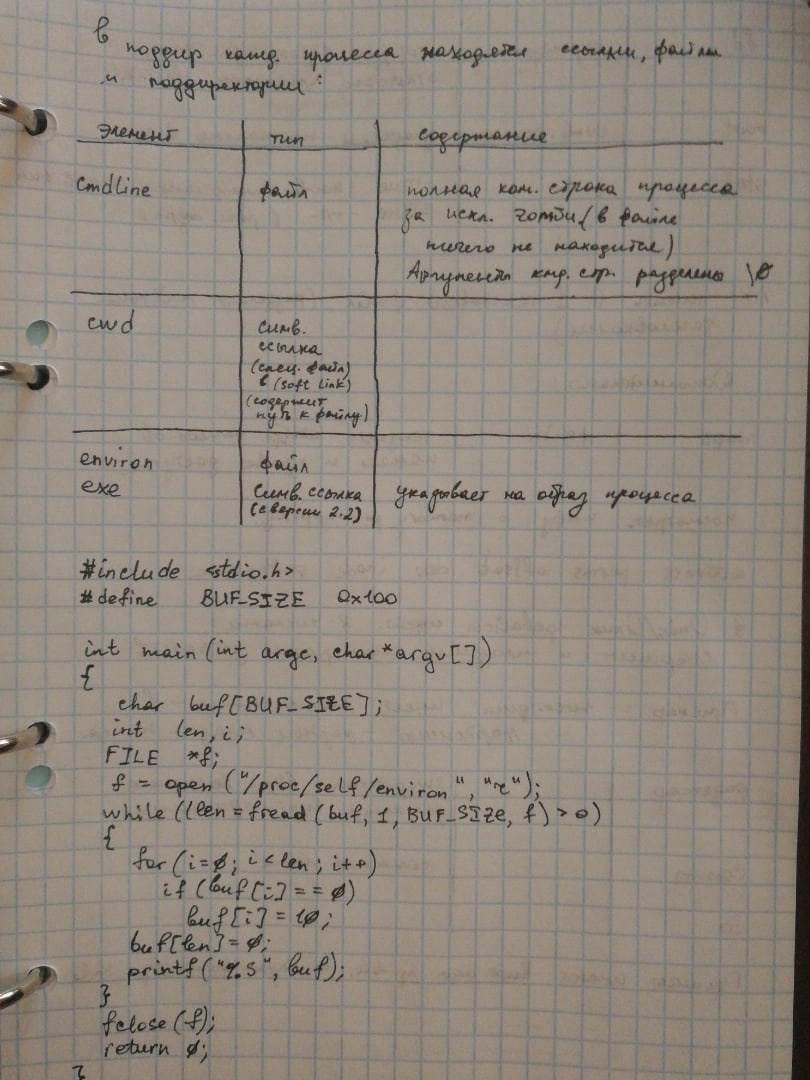 в поддир кажд. процесса находятся ссылки, файлы
и поддиректории:
элемент тип содержание
cmdline файл полная ком. строка процесса
за искл. зомби (в файле
ничего не находится)
Аргументы кмд. стр. разделены \0
cwd симв.
ссылка
(спец. файл)
в (soft link)
(содержит
путь к файлу)
environ файл
exe симв. ссылка указывает на образ процесса
(с версии 2.2)
#include <stdio.h>
#define BUF_SIZE 0x100
int main (int argc, char *argv[])
{
char buf[BUF_SIZE];
int len, i;
FILE *f;
f = open ("/proc/self/environ", "r");
while ((len = fread (buf, 1, BUF_SIZE, f) > 0)
{
for (i=0; i < len; i++)
if (buf[i] == 0)
buf[i] = 10;
buf[len] = 0;
printf("%s", buf);
}
fclose(f);
return 0;
}